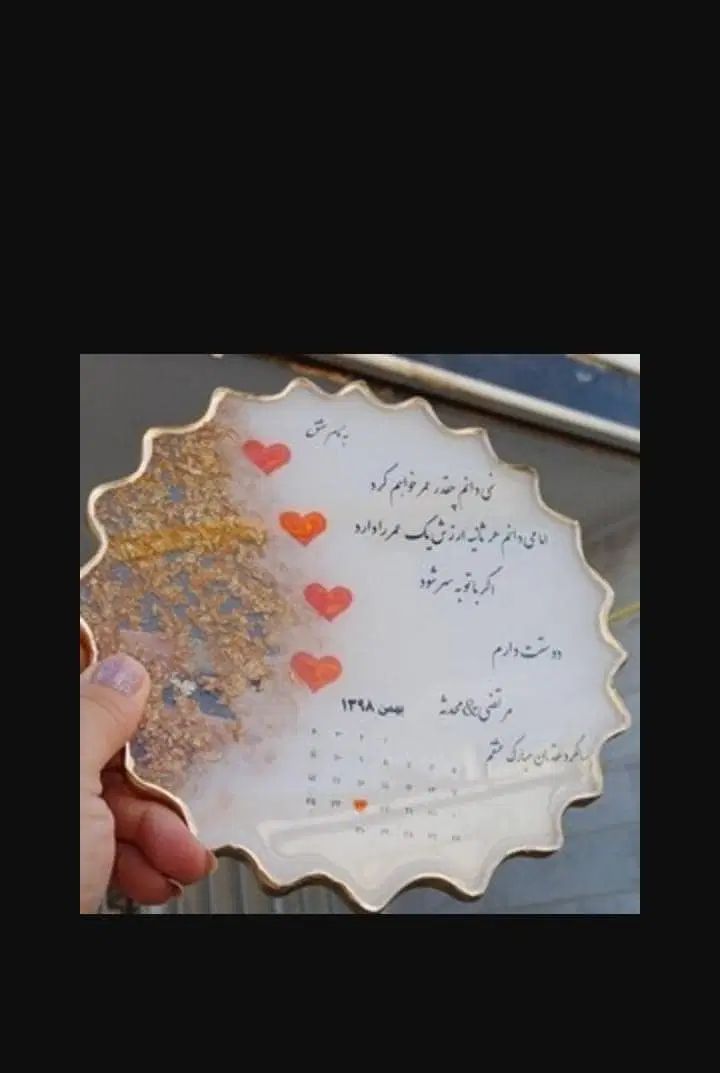 به نام عشق
نمی دانم چقدر عمر خواهم کرد
اما می دانم هر ثانیه ارزش یک عمر را دارد
اگر با تو به سر شود
دوستت دارم
مرتضی & محدثه
بهمن ۱۳۹۸
سالگرد عقدمان مبارک عشقم